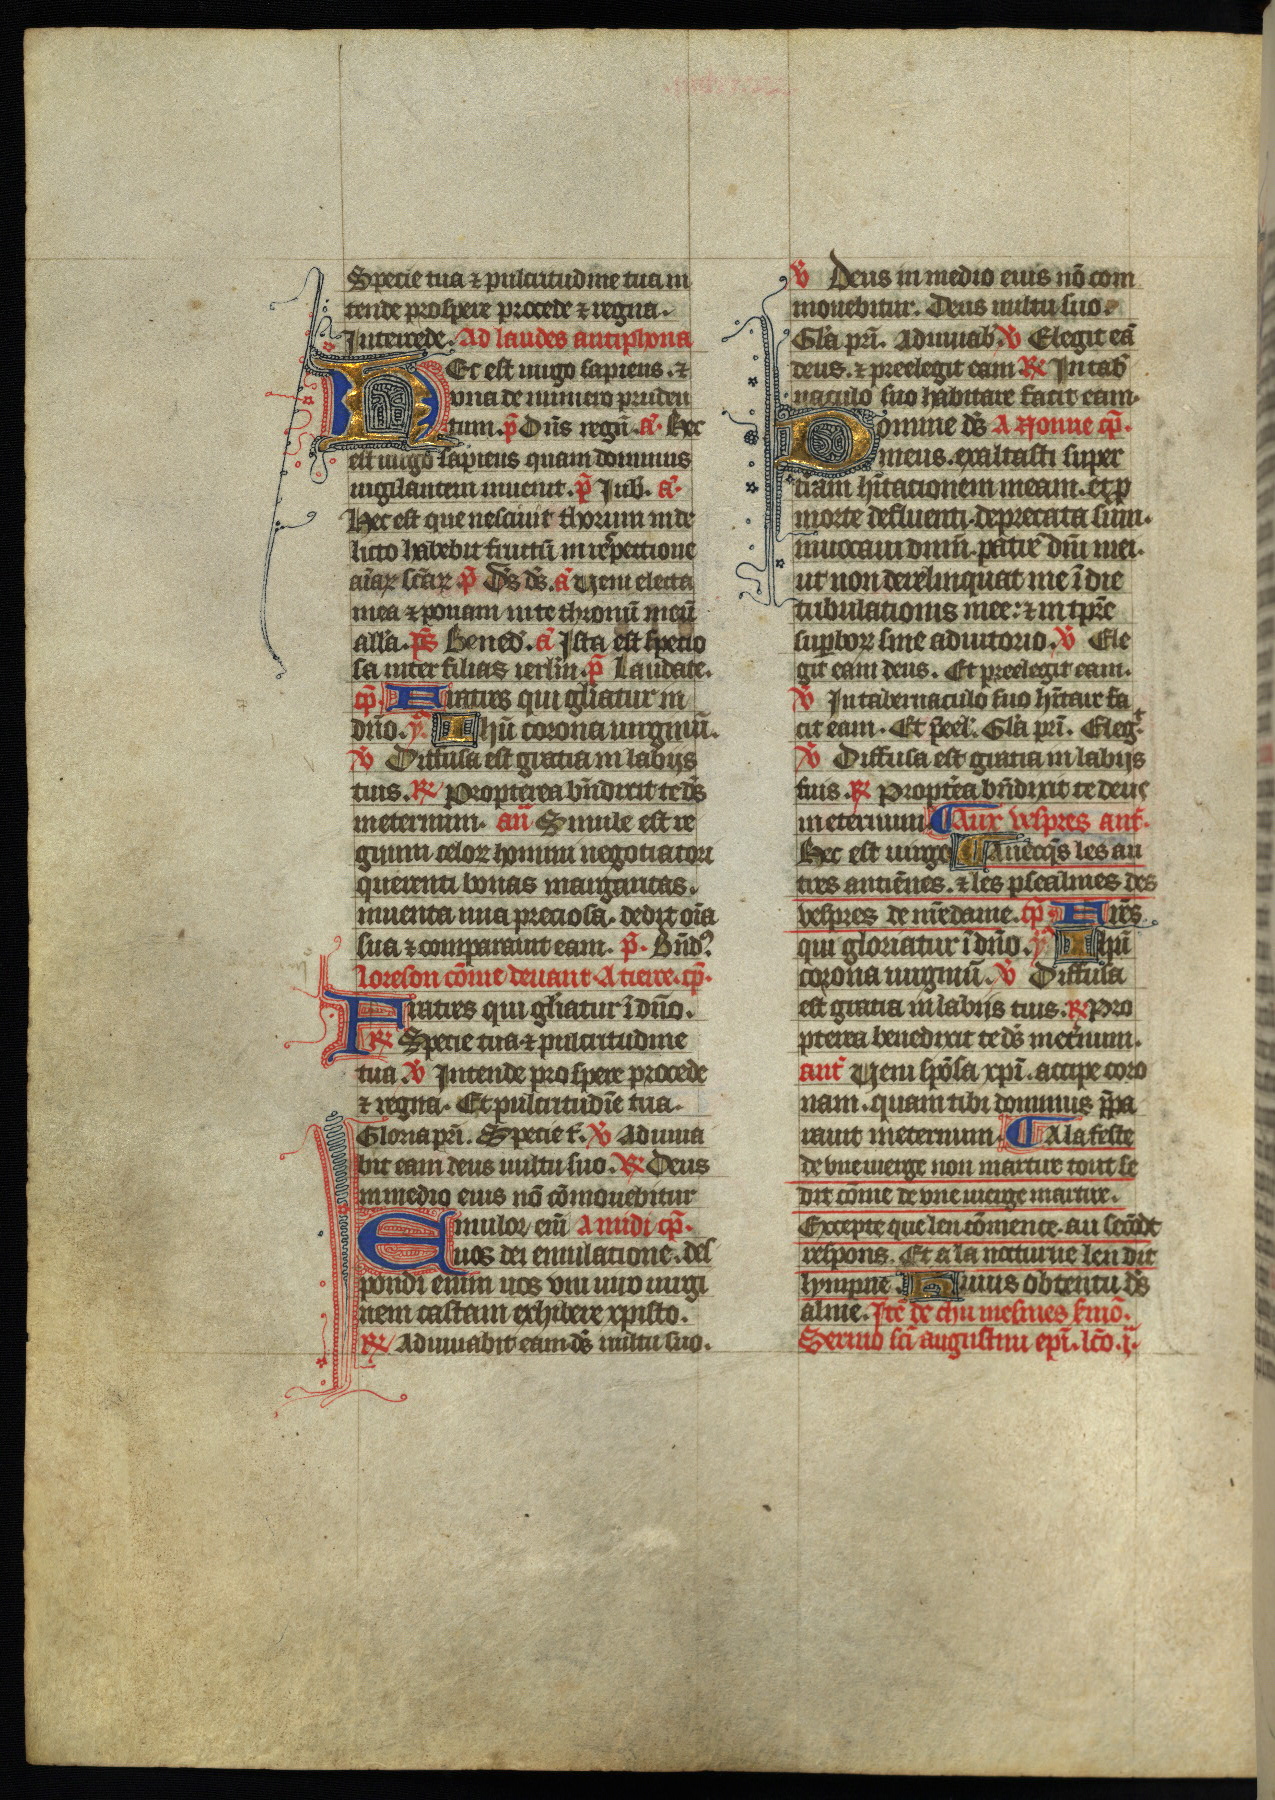 Specie tua ⁊ pulcritudine tua in
tende prospere procede ⁊ regna.
Intercede. Ad laudes antiphona
Ec est uirgo sapiens. ⁊
vna de numero pruden
tum. p̄ Dn̄s regū. a̅. Hec
est uirgo sapiens quam dominus
uigilantem inuenit. p̄ Iub. a̅.
Hec est que nesciuit thorum in de
licto habebit fructū in respectione
aīaꝝ sc̄aꝝ p̄ Ds̄ ds̄. a̅ Ueni electa
mea ⁊ ponam in te thronū meū
alla. p̄s Bened̄. a̅ Ista est specio
sa inter filias ierlm̄. p̄ Laudate.
cp̄. Fratres qui gl̄iatur in
dn̄o. y̅ Ihū corona uirginū.
℣ Diffusa est gratia in labijs
tuis. ℟ Propterea bn̄dixit te ds̄
ineternum. an̄ Simile est re
gnum celoꝝ homini negotiatori
querenti bonas margaritas.
inuenta una preciosa. dedit oīa
sua ⁊ comparauit eam. p̄. Bn̄d
loreson cōme deuant. A tierce. cp̄.
Fratres qui gl̄iatur ī dn̄o.
℟ Specie tua ⁊ pulcritudine
tua ℣ Intende prospere procede
⁊ regna. Et pulcritudīe tua.
Gloria pr̄i. Specie t̄. ℣ Adiuua
bit eam deus uultu suo. ℟ Deus
in medio eius nō cōmouebitur
Emulor eni̅ A midi cp̄.
uos dei emulatione. des
pondi enim uos vni uiro uirgi
nem castam exhibere xpisto.
℟ Adiuuabit eam ds̄ uultu suo.
℣ Deus in medio eius nō com
mouebitur. Deus uultu suo.
Gl̄a pr̄i. Adiuuab. ℣ Elegit eā
deus. ⁊ preelegit eam ℟ In tab̄
naculo suo habitare facit eam.
Domine ds̄ A Nonne cp̄.
meus. exaltasti super
t̄ram h̄itationem meam. et ꝓ
morte defluenti. deprecata sum.
inuocaui dnm̄. patrē dn̄i mei.
ut non derelinquat me ī die
tribulationis mee: ⁊ in tp̄re
supboꝝ sine adiutorio. ℣ Ele
git eam deus. Et preelegit eam.
℣ In tabernaculo suo h̄itare fa
cit eam. Et p̄eel. Gl̄a pr̄i. Elegt.
℣ Diffusa est gratia in labijs
suis. ℟ Propt̄ea bn̄dixit te deus
ineternum. Aux vespres ant̄.
Hec est uirgo Auecqs̄ les au
tres antiēnes. ⁊ les psealmes des
vespres de nr̄e dame. cp̄. Frēs
qui gloriatur ī dn̄o. y̅ Ihū
corona uirginū. ℣ Diffusa
est gratia in labijs tuis. ℟ Pro
pterea benedixit te ds̄ inet̄num.
ant̄ Ueni spōsa xpī. accipe coro
nam. quam tibi dominus p̄pa
rauit ineternum. A la feste
de vne uierge non martire tout se
dit cōme de vne uierge martire.
Excepte que len cōmence. au secōde
respons. Et a la nocturne len dit
lympne. Huius obtentu ds̄
alme. Itē de chu mesmes s̄mō.
Sermo sc̄i augustini epī. lc̄o. ī.